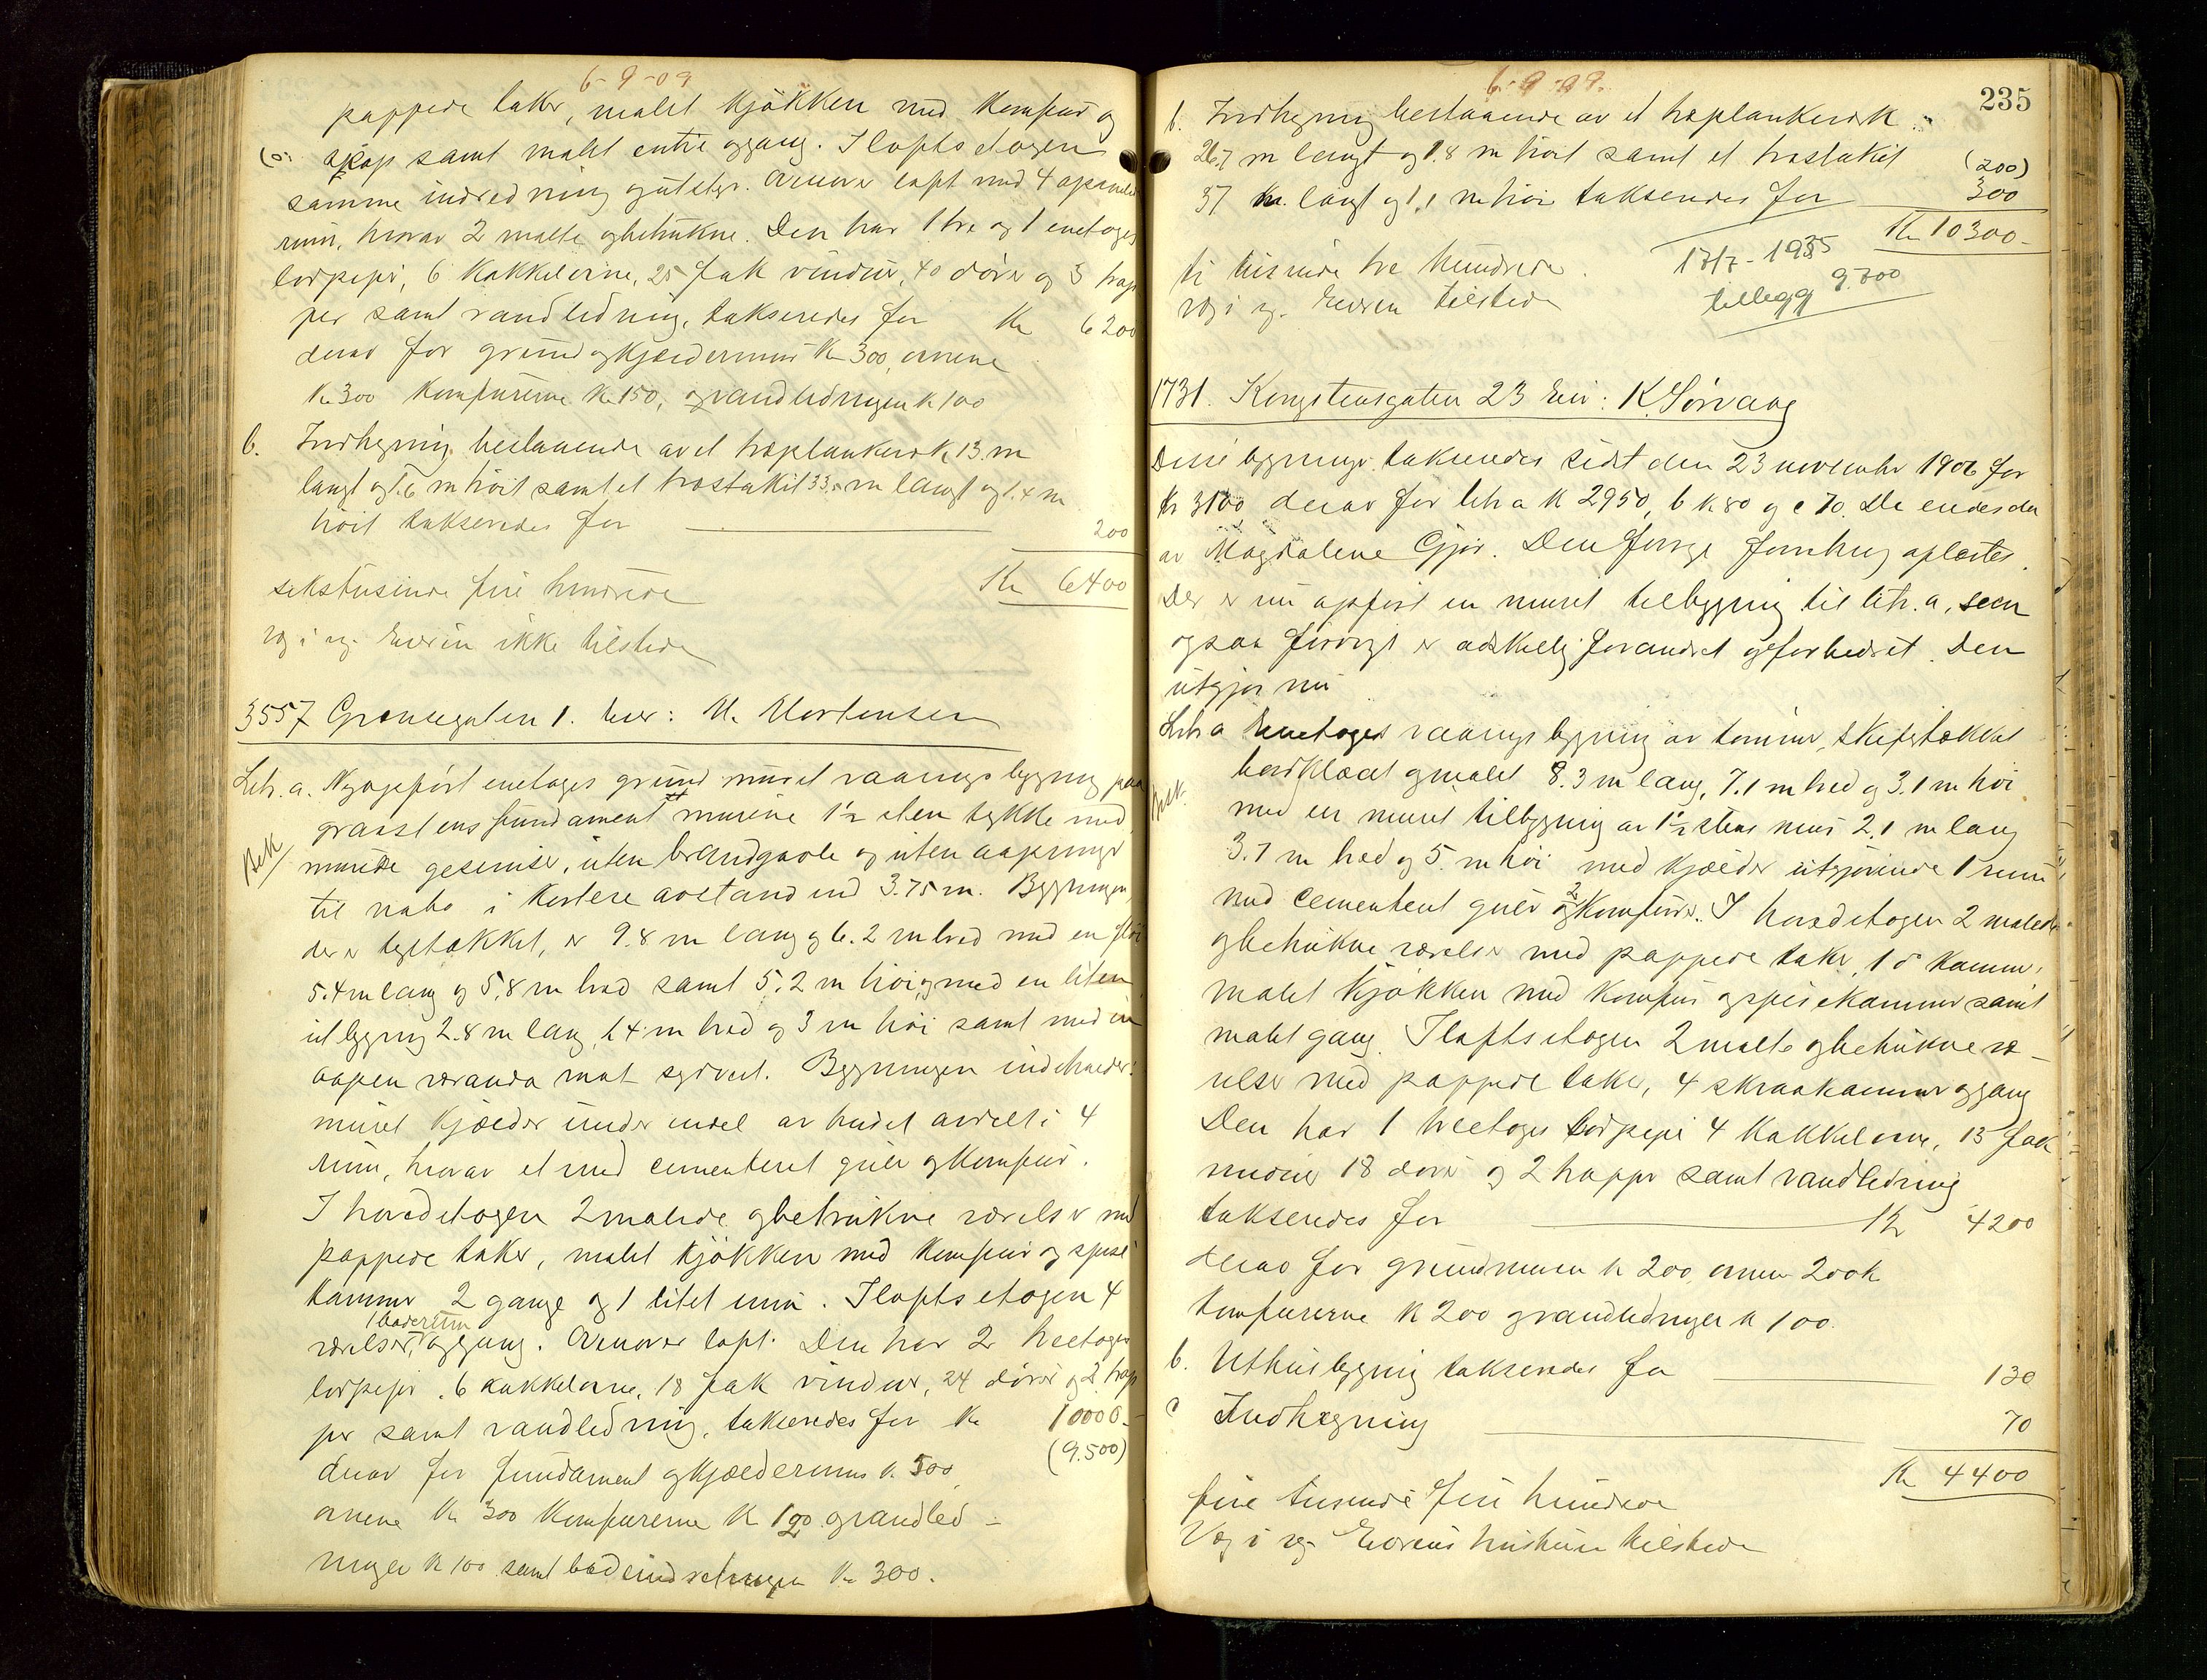 6-9-09
pappede taker, malet kjøkken med komfur og
skap samt malet entre og gang. I loftsetagen
samme indredning og utstyr. Ovenover loft med 4 
rum, hvorav 2 malte og betrukne. Den har 1 tre og 1 enetages
lødpipe, 6 kakkelovne, 25 fak vinduer, 40 døre og 3 trap
per samt vandledning, takseredes for Kr 6200
derav for grund og kjældermur Kr 300, ovnene
Kr 300 komfurerne Kr 150, og vandledningen Kr 100
b. Indhegning bestaaende av et træplankeværk 13 m
langt og 1.6 m høit samt et træstakit 33 m langt og 1.4 m
høit takseredes for 200
Kr 6400
sekstusinde fire hundrede
Eieren ikke tilstede
3557 Grænsegaten 1. Eier: M. Mortensen
Litr. a. Nyopført enetages grund muret vaaningsbygning paa
graastensfundament murene 1½ sten tykke med
Besk
murede gesimser, uten brandgavle og uten aapninger
til nabo i kortere avstand end 3.75 m. Bygningen
der er tegltækket, er 9.8 m lang og 6.2 m bred med en fløi
5.4 m lang og 5.8 m bred samt 5.2 m høi og med en liten
utbygning 2.8 m lang, 1.4 m bred og 3 m høi samt med en
aapen veranda mot sydvest. Bygningen indeholder:
muret kjælder under endel av huset avdelt i 4
rum, hvorav et med cementeret gulv og komfur.
I hovedetagen 2 malede og betrukne værelser med
pappede taker, malet kjøkken med komfur og spise
kammer 2 gange og 1 litet rum. I loftsetagen 4
1 baderum
værelser, og gang. Ovenover loft. Den har 2 treetages
lødpiper, 6 kakkelovne, 18 fak vinduer, 24 døre og 2 trap
per samt vandledning, takseredes for Kr 10000.-
(9.500)
derav for fundament og kjældermur k. 500,
ovnene Kr 300 komfurerne K 120 og vandled-
ningen K 100 samt badeindretningen Kr 300.
6-9-09.
235
b. Indhegning bestaaende av et træplankeværk
26.7 m langt og 1.8 m høit samt et træstakit
(200)
37 m. langt og 1.1 m høi takseredes for 300
Kr 10300-
ti tusinde tre hundrede.
17/7-1935
tillegg 9.700
Eieren tilstede
1731. Kongstensgaten 23 Eier: K. Sørvang
Disse bygninger takseredes sidst den 23 november 1906 for
kr 3100 derav for litr a K 2950, b k 80 og c 70. De eiedes da
av Magdalene Gjør. Den forrige forretning oplæstes.
Der er nu opført en muret tilbygning til litr. a, som
ogsaa forøvrigt er adskillig forandret og forbedret. Den
utgjør nu
Litr a Enetages vaaningsbygning av tømmer, skifertækket
bordklædt og malet 8.3 m lang, 7.1 m bred og 3.1 m høi
Besk.
med en muret tilbygning av 1½ stens mur 2.1 m lang
3.7 m bred og 5 m høi med kjælder utgjørende 1 rum
med cementert gulv og 2 komfurer. I hovedetagen 2 malede
og betrukne værelser med pappede taker, 1 do kammer,
malet kjøkken med komfur og spisekammer samt
malet gang. I loftsetagen 2 malte og betrukne væ-
relser med pappede taker, 4 skraakammer og gang
Den har 1 treetages lødpipe 4 kakkelovne, 15 fak
vinduer 18 døre og 2 trapper samt vandledning
takseredes for Kr 4200
derav for grundmuren k 200, ovnene 200 k
komfurerne K 200 og vandledningen k 100.
b. Uthusbygning takseredes for 130
c Indhegning 70
Kr 4400
fire tusinde fire hundrede
Eierens hustru tilstede